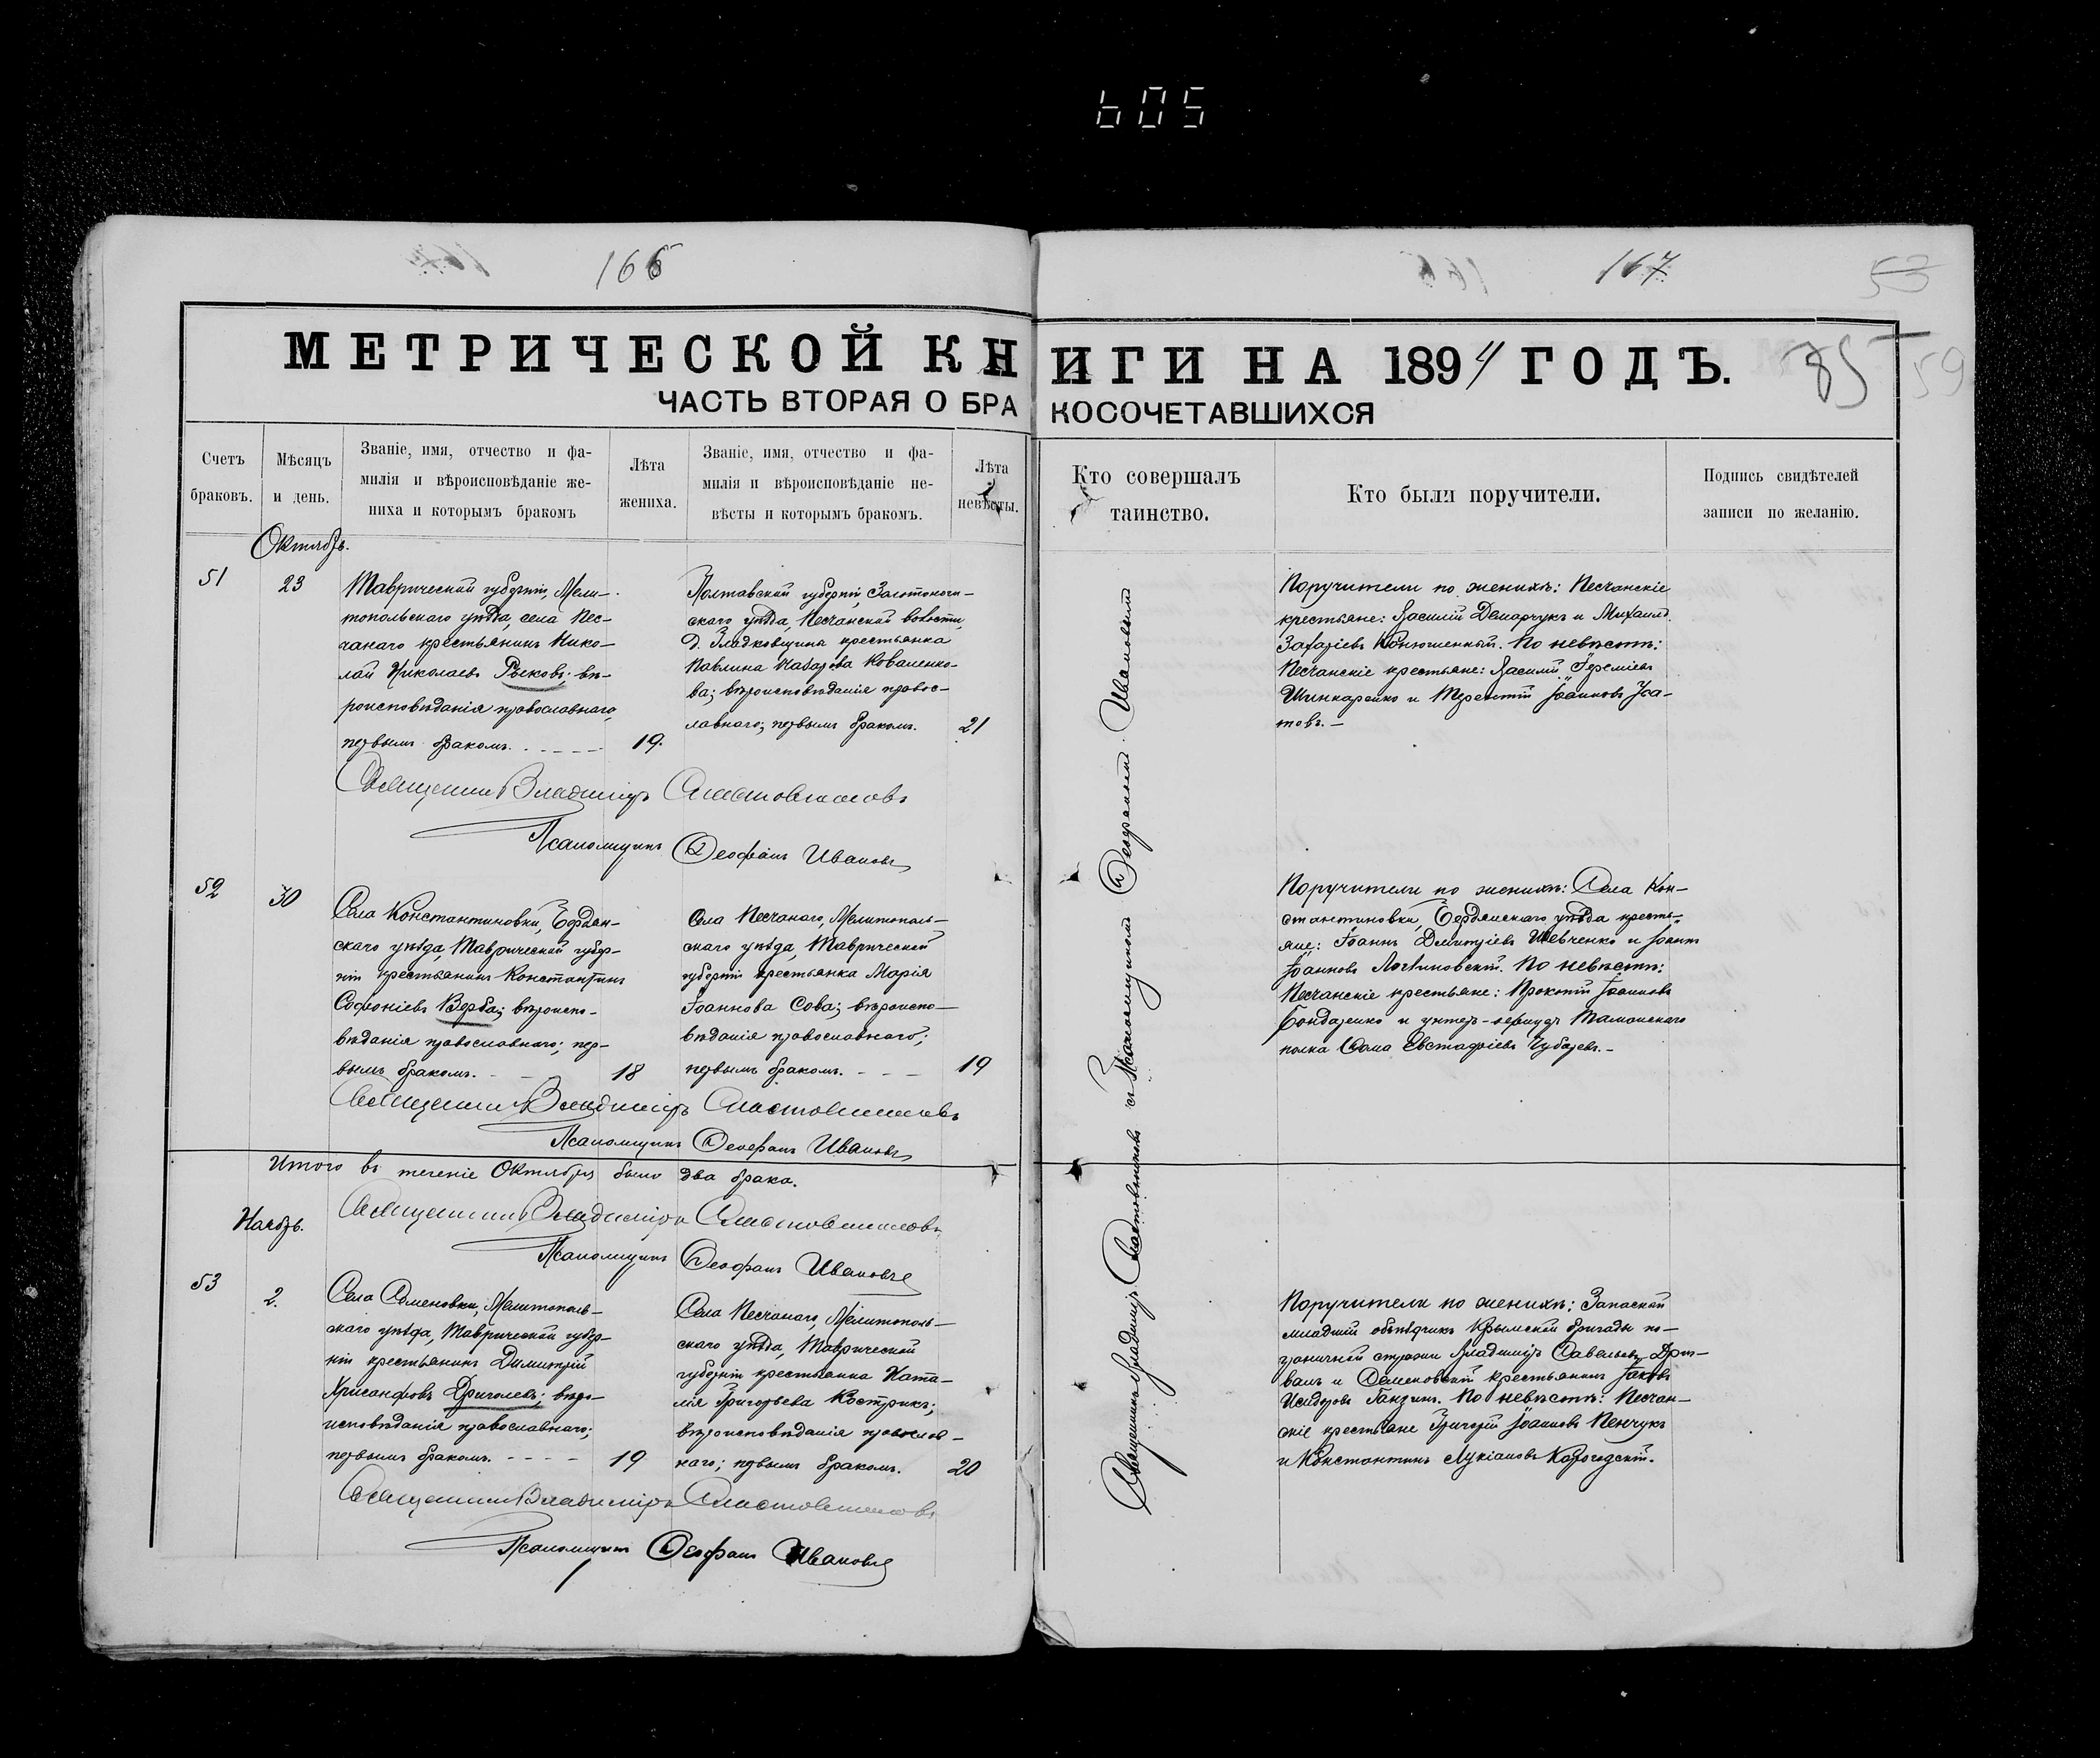 605
166
167
53
МЕТРИЧЕСКОЙ КНИГИ НА 1894 ГОДЪ.
85
59
ЧАСТЬ ВТОРАЯ О БРАКОСОЧЕТАВШИХСЯ
Счетъ браковъ.
Мѣсяцъ и день.
Званіе, имя, отчество и фа-
милія и вѣроисповѣданіе же-
ниха и которымъ бракомъ
Лѣта жениха.
Званіе, имя, отчество и фа-
милія и вѣроисповѣданіе не-
вѣсты и которымъ бракомъ.
Лѣта невѣсты.
Кто совершалъ таинство.
Кто были поручители.
Подпись свидѣтелей
записи по желанію.
Октябрь.
51
23
Таврической губерніи, Мели-
топольскаго уѣзда, села Пес-
чанаго крестьянинъ Нико-
лай Николаевъ Рѣсковъ; вѣ-
роисповѣданія православнаго,
первымъ бракомъ.
19.
Полтавской губерніи, Золотоно-
скаго уѣзда, Песчанской волости,
д. Гладковщина крестьянка
Павлина Назарова Коваленко-
ва; вѣроисповѣданія правос-
лавнаго; первымъ бракомъ.
21
Поручители по женихѣ: Песчанскіе
крестьяне: Василій Демарчукъ и Михаилъ
Захаріевъ Конюшенный. По невѣстѣ:
Песчанскіе крестьяне: Василій Іереміевъ
Шинкаренко и Терентій Іоанновъ Уса-
товъ.
Священникъ Владиміръ Сластовниковъ
Псаломщикъ Ѳеофанъ Ивановъ
52
30
Села Константиновки, Бердян-
скаго уѣзда, Таврической губер-
ніи крестьянинъ Константинъ
Софоніевъ Верба; вѣроиспо-
вѣданія православнаго; пер-
вымъ бракомъ.
18
Села Песчанаго, Мелитополь-
скаго уѣзда, Таврической
губерніи крестьянка Марія
Іоаннова Сова; вѣроиспо-
вѣданія православнаго;
первымъ бракомъ.
19
Поручители по женихѣ: Села Кон-
стантиновки, Бердянскаго уѣзда кресть-
яне: Іоаннъ Димитріевъ Шевченко и Іоаннъ
Іоанновъ Логвиновскій. По невѣстѣ:
Песчанскіе крестьяне: Прокопій Іоанновъ
Бондаренко и унтеръ-офицеръ Таманскаго
полка Ѳома Евстафіевъ Чубаревъ.
Священникъ Владиміръ Сластовниковъ
Псаломщикъ Ѳеофанъ Ивановъ
Итого въ теченіе Октября было два брака.
Священникъ Владиміръ Сластовниковъ
Псаломщикъ Ѳеофанъ Ивановъ
Ноябрь.
53
2.
Села Семеновки, Мелитополь-
скаго уѣзда, Таврической губер-
ніи крестьянинъ Димитрій
Хрисанфовъ Дриголевъ; вѣро-
исповѣданія православнаго;
первымъ бракомъ.
19
Села Песчанаго, Мелитополь-
скаго уѣзда, Таврической
губерніи крестьянка Ната-
лія Григорьева Кострикъ;
вѣроисповѣданія правослов-
наго; первымъ бракомъ.
20
Поручители по женихѣ: Запасный
младшій объѣздчикъ Крымской бригады по-
граничной стражи Владиміръ Савельевъ Дри-
валъ и Семеновскій крестьянинъ Іаковъ
Исидоровъ Ганзинъ. По невѣстѣ: Песчан-
скіе крестьяне Григорій Іоанновъ Пенчукъ
и Константинъ Лукіановъ Карогодскій.
Священникъ Владиміръ Сластовниковъ
Псаломщикъ Ѳеофанъ Ивановъ
Священникъ Владиміръ Сластовниковъ съ Псаломщикомъ Ѳеофаномъ Ивановымъ